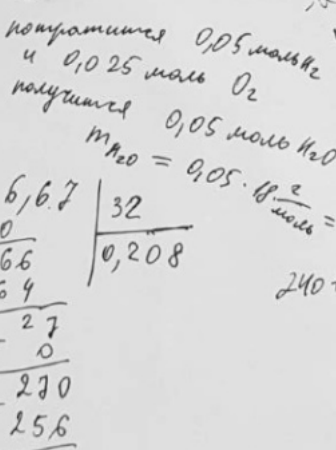 потратится 0,05 моль H₂
и 0,025 моль O₂
получится 0,05 моль H₂O
m H₂O = 0,05 · 18 г/моль =
6,6.7 | 32
0
66 | 0,208
64
27
0
270
256
240